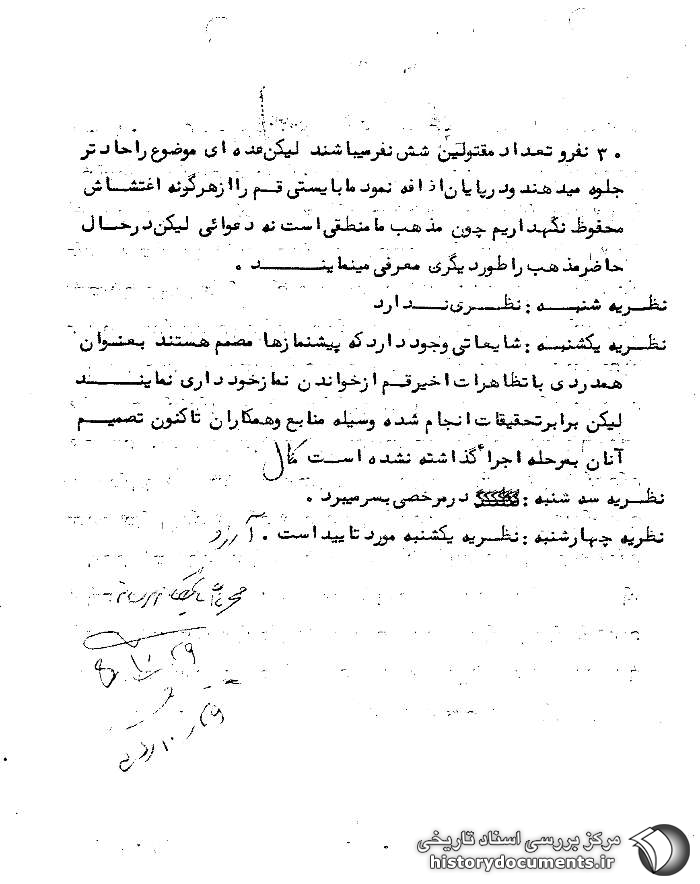 ۳۰ نفر و تعداد مقتولین شش نفر میباشند لیکن عده ای موضوع را حاد تر
جلوه میدهند و در پایان اضافه نمود ما بایستی قم را از هرگونه اغتشاش
محفوظ نگهداریم چون مذهب ما منطقی است نه دعوائی لیکن در حال
حاضر مذهب را طور دیگری معرفی مینمایند .
نظریه شنبه : نظری ندارد
نظریه یکشنبه : شایعاتی وجود دارد که پیشنمازها مصمم هستند بعنوان
همدردی با تظاهرات اخیر قم از خواندن نماز خودداری نمایند
لیکن برابر تحقیقات انجام شده وسیله منابع و همکاران تاکنون تصمیم
آنان بمرحله اجراء گذاشته نشده است
نظریه سه شنبه : در مرخصی بسر میبرد .
نظریه چهارشنبه : نظریه یکشنبه مورد تایید است .
مرکز بررسی اسناد تاریخی
historydocuments.ir